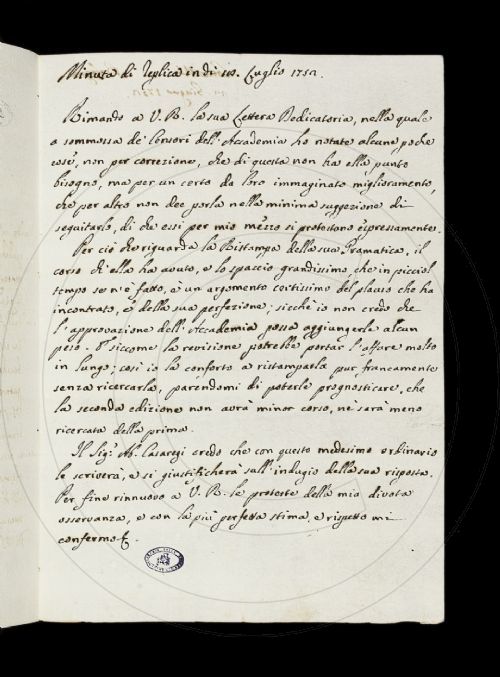 Minuta di Replica in dì 18. Luglio 1752.
Rimando a V. R. la sua Lettera Dedicatoria, nella quale
a sommossa de' Censori dell'Accademia ho notate alcune poche
cose, non per correzione, che di questa non ha ella punto
bisogno, ma per un certo da loro immaginato miglioramento,
che per altro non dee porla nella minima suggezione di
seguitarlo, di che essi per mio mezzo si protestano espressamente.
Per ciò che riguarda la Ristampa della sua Gramatica, il
corso ch'ella ha avuto, e lo spaccio grandissimo, che in picciol
tempo se n'è fatto, è un argomento certissimo del plauso che ha
incontrato, e della sua perfezione; sicchè io non credo che
l'approvazione dell'Accademia possa aggiungerle alcun
peso. E siccome la revisione potrebbe portar l'affare molto
in lungo; così io la conforto a ristamparla pur francamente
senza ricercarla, parendomi di poterle prognosticare, che
la seconda edizione non avrà minor corso, nè sarà meno
ricercata della prima.
Il Sig.r Ab. Casaregi credo che con questo medesimo ordinario
le scriverà, e si giustificherà sull'indugio della sua risposta.
Per fine rinnuovo a V. R. le proteste della mia divota
osservanza, e con la più perfetta stima, e rispetto mi
confermo